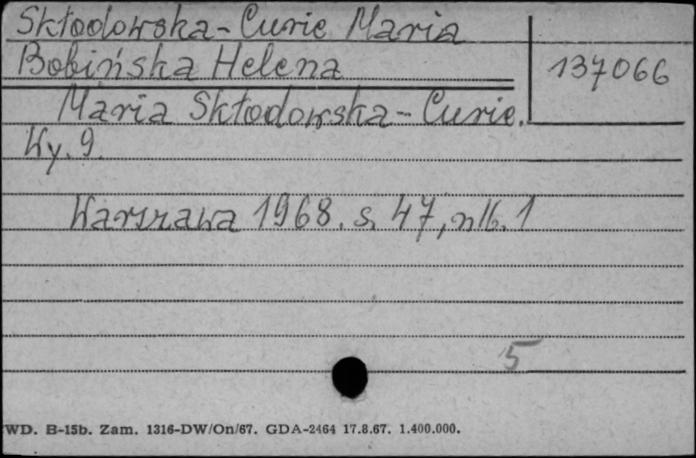 Skłodowska-Curie Maria
Bobińska Helena
137066
Maria Skłodowska-Curie.
Wy. 9.
Warszawa 1968. s. 47, nlb. 1
5
WD. B-15b. Zam. 1316-DW/On/67. GDA-2464 17.8.67. 1.400.000.